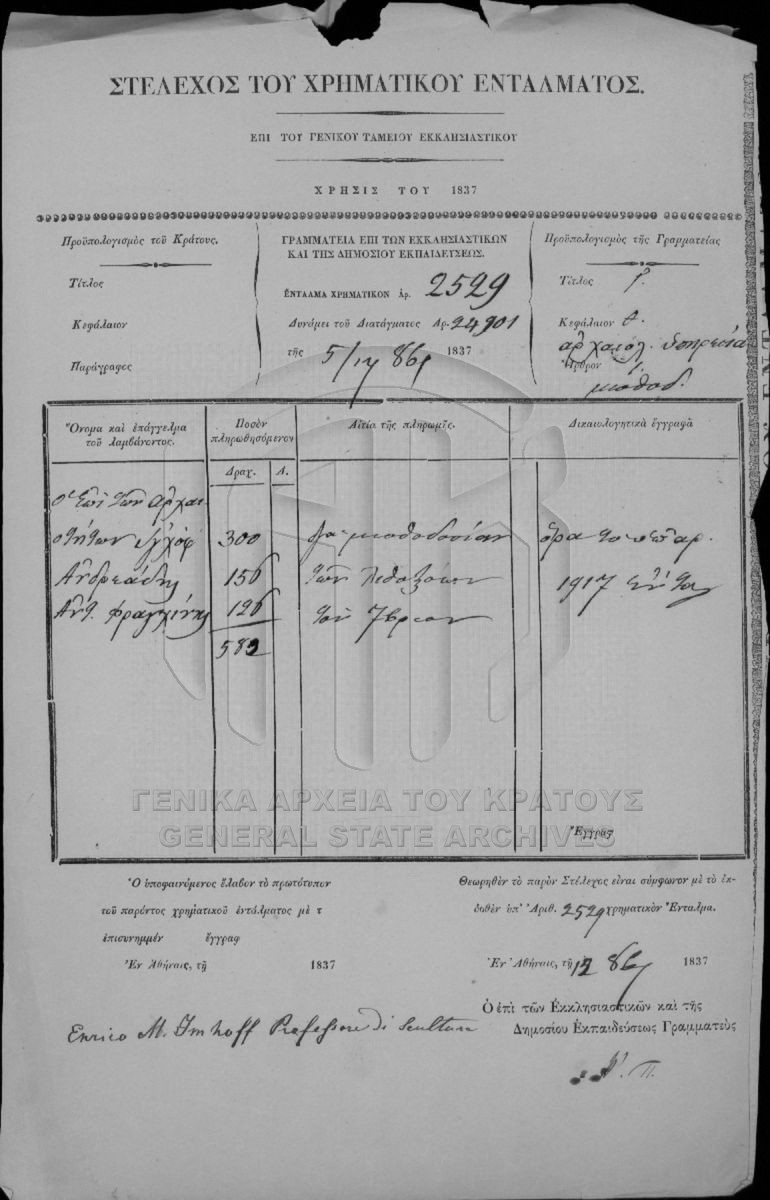 ΣΤΕΛΕΧΟΣ ΤΟΥ ΧΡΗΜΑΤΙΚΟΥ ΕΝΤΑΛΜΑΤΟΣ.
ΕΠΙ ΤΟΥ ΓΕΝΙΚΟΥ ΤΑΜΕΙΟΥ ΕΚΚΛΗΣΙΑΣΤΙΚΟΥ
ΧΡΗΣΙΣ ΤΟΥ 1837
Προϋπολογισμὸς τοῦ Κράτους.
Τίτλος
Κεφάλαιον
Παράγραφος
ΓΡΑΜΜΑΤΕΙΑ ΕΠΙ ΤΩΝ ΕΚΚΛΗΣΙΑΣΤΙΚΩΝ
ΚΑΙ ΤΗΣ ΔΗΜΟΣΙΟΥ ΕΚΠΑΙΔΕΥΣΕΩΣ.
ἘΝΤΑΛΜΑ ΧΡΗΜΑΤΙΚΟΝ ἀρ. 2529
Δυνάμει τοῦ Διατάγματος Αρ. 24901
τῆς 5/17 8βρ 1837
Προϋπολογισμὸς τῆς Γραμματείας
Τίτλος
Κεφάλαιον
ἀρχαιολ. ὑπηρεσία
Ἄρθρον
μισθοδ.
Ὄνομα καὶ ἐπάγγελμα
τοῦ λαμβάνοντος.
Ποσὸν
πληρωθησόμενον
Αἰτία τῆς πληρωμῆς.
Δικαιολογητικὰ ἔγγραφὰ
Δραχ. Λ.
ὁ ἐπὶ τῶν ἀρχαι-
οτήτων 300 μισθοδοσίαν ὅρα το ὑπ' αρ.
Ἀνδρεάδης 156 τῶν 1917
Ἀντ. Φραγγίνης 126 τοῦ 7βρίου
582
ΓΕΝΙΚΑ ΑΡΧΕΙΑ ΤΟΥ ΚΡΑΤΟΥΣ
GENERAL STATE ARCHIVES
Ἔγγραφ
Ὁ ὑποφαινόμενος ἔλαβον τὸ πρωτότυπον
τοῦ παρόντος χρηματικοῦ ἐντάλματος μὲ τ
ἐπισυνημμέν ἔγγραφ
Ἐν Ἀθήναις, τῇ 1837
Θεωρηθὲν τὸ παρὸν Στέλεχος εἶναι σύμφωνον μὲ τὸ ἐκ-
δοθὲν ὑπ' Ἀριθ. 2529 χρηματικὸν Ἔνταλμα.
Ἐν Ἀθήναις, τῇ 12 8βρ 1837
Ὁ ἐπὶ τῶν Ἐκκλησιαστικῶν καὶ τῆς
Δημοσίου Ἐκπαιδεύσεως Γραμματεὺς
Enrico M. Imhoff Professore di Scultura